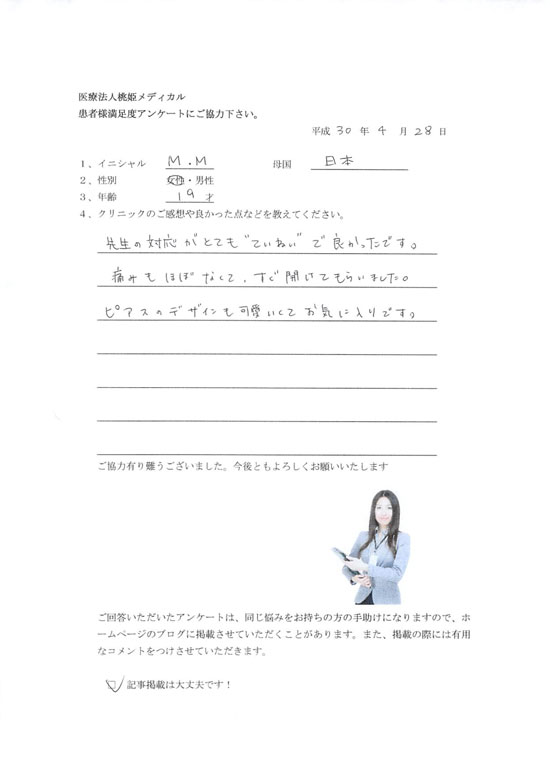 医療法人桃姫メディカル
患者様満足度アンケートにご協力下さい。
平成 30 年 4 月 28 日
1、イニシャル M.M 母国 日本
2、性別 女性・男性
3、年齢 19 才
4、クリニックのご感想や良かった点などを教えてください。
先生の対応がとても"ていねい"で良かったです。
痛みもほぼなくて、すぐ開けてもらいました。
ピアスのデザインも可愛いくてお気に入りです。
ご協力有り難うございました。今後ともよろしくお願いいたします
ご回答いただいたアンケートは、同じ悩みをお持ちの方の手助けになりますので、ホ
ームページのブログに掲載させていただくことがあります。また、掲載の際には有用
なコメントをつけさせていただきます。
□記事掲載は大丈夫です！